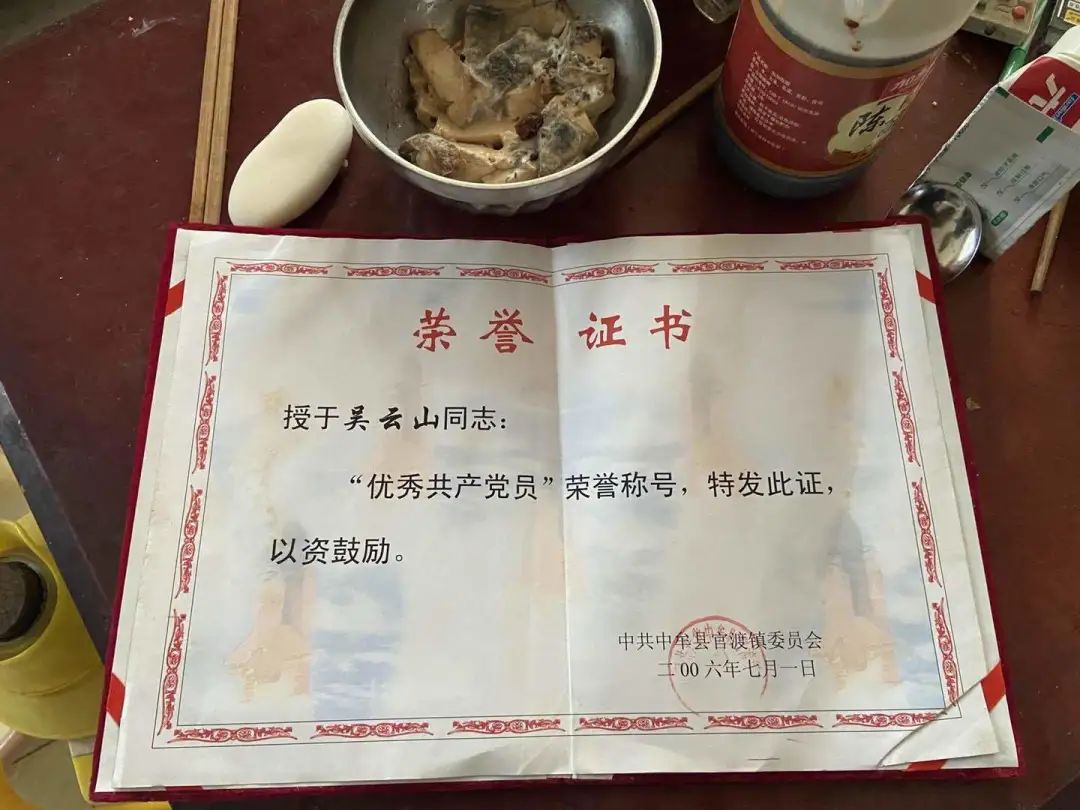 陈
荣誉证书
授于吴云山同志：
“优秀共产党员”荣誉称号，特发此证，
以资鼓励。
中共中牟县官渡镇委员会
二00六年七月一日